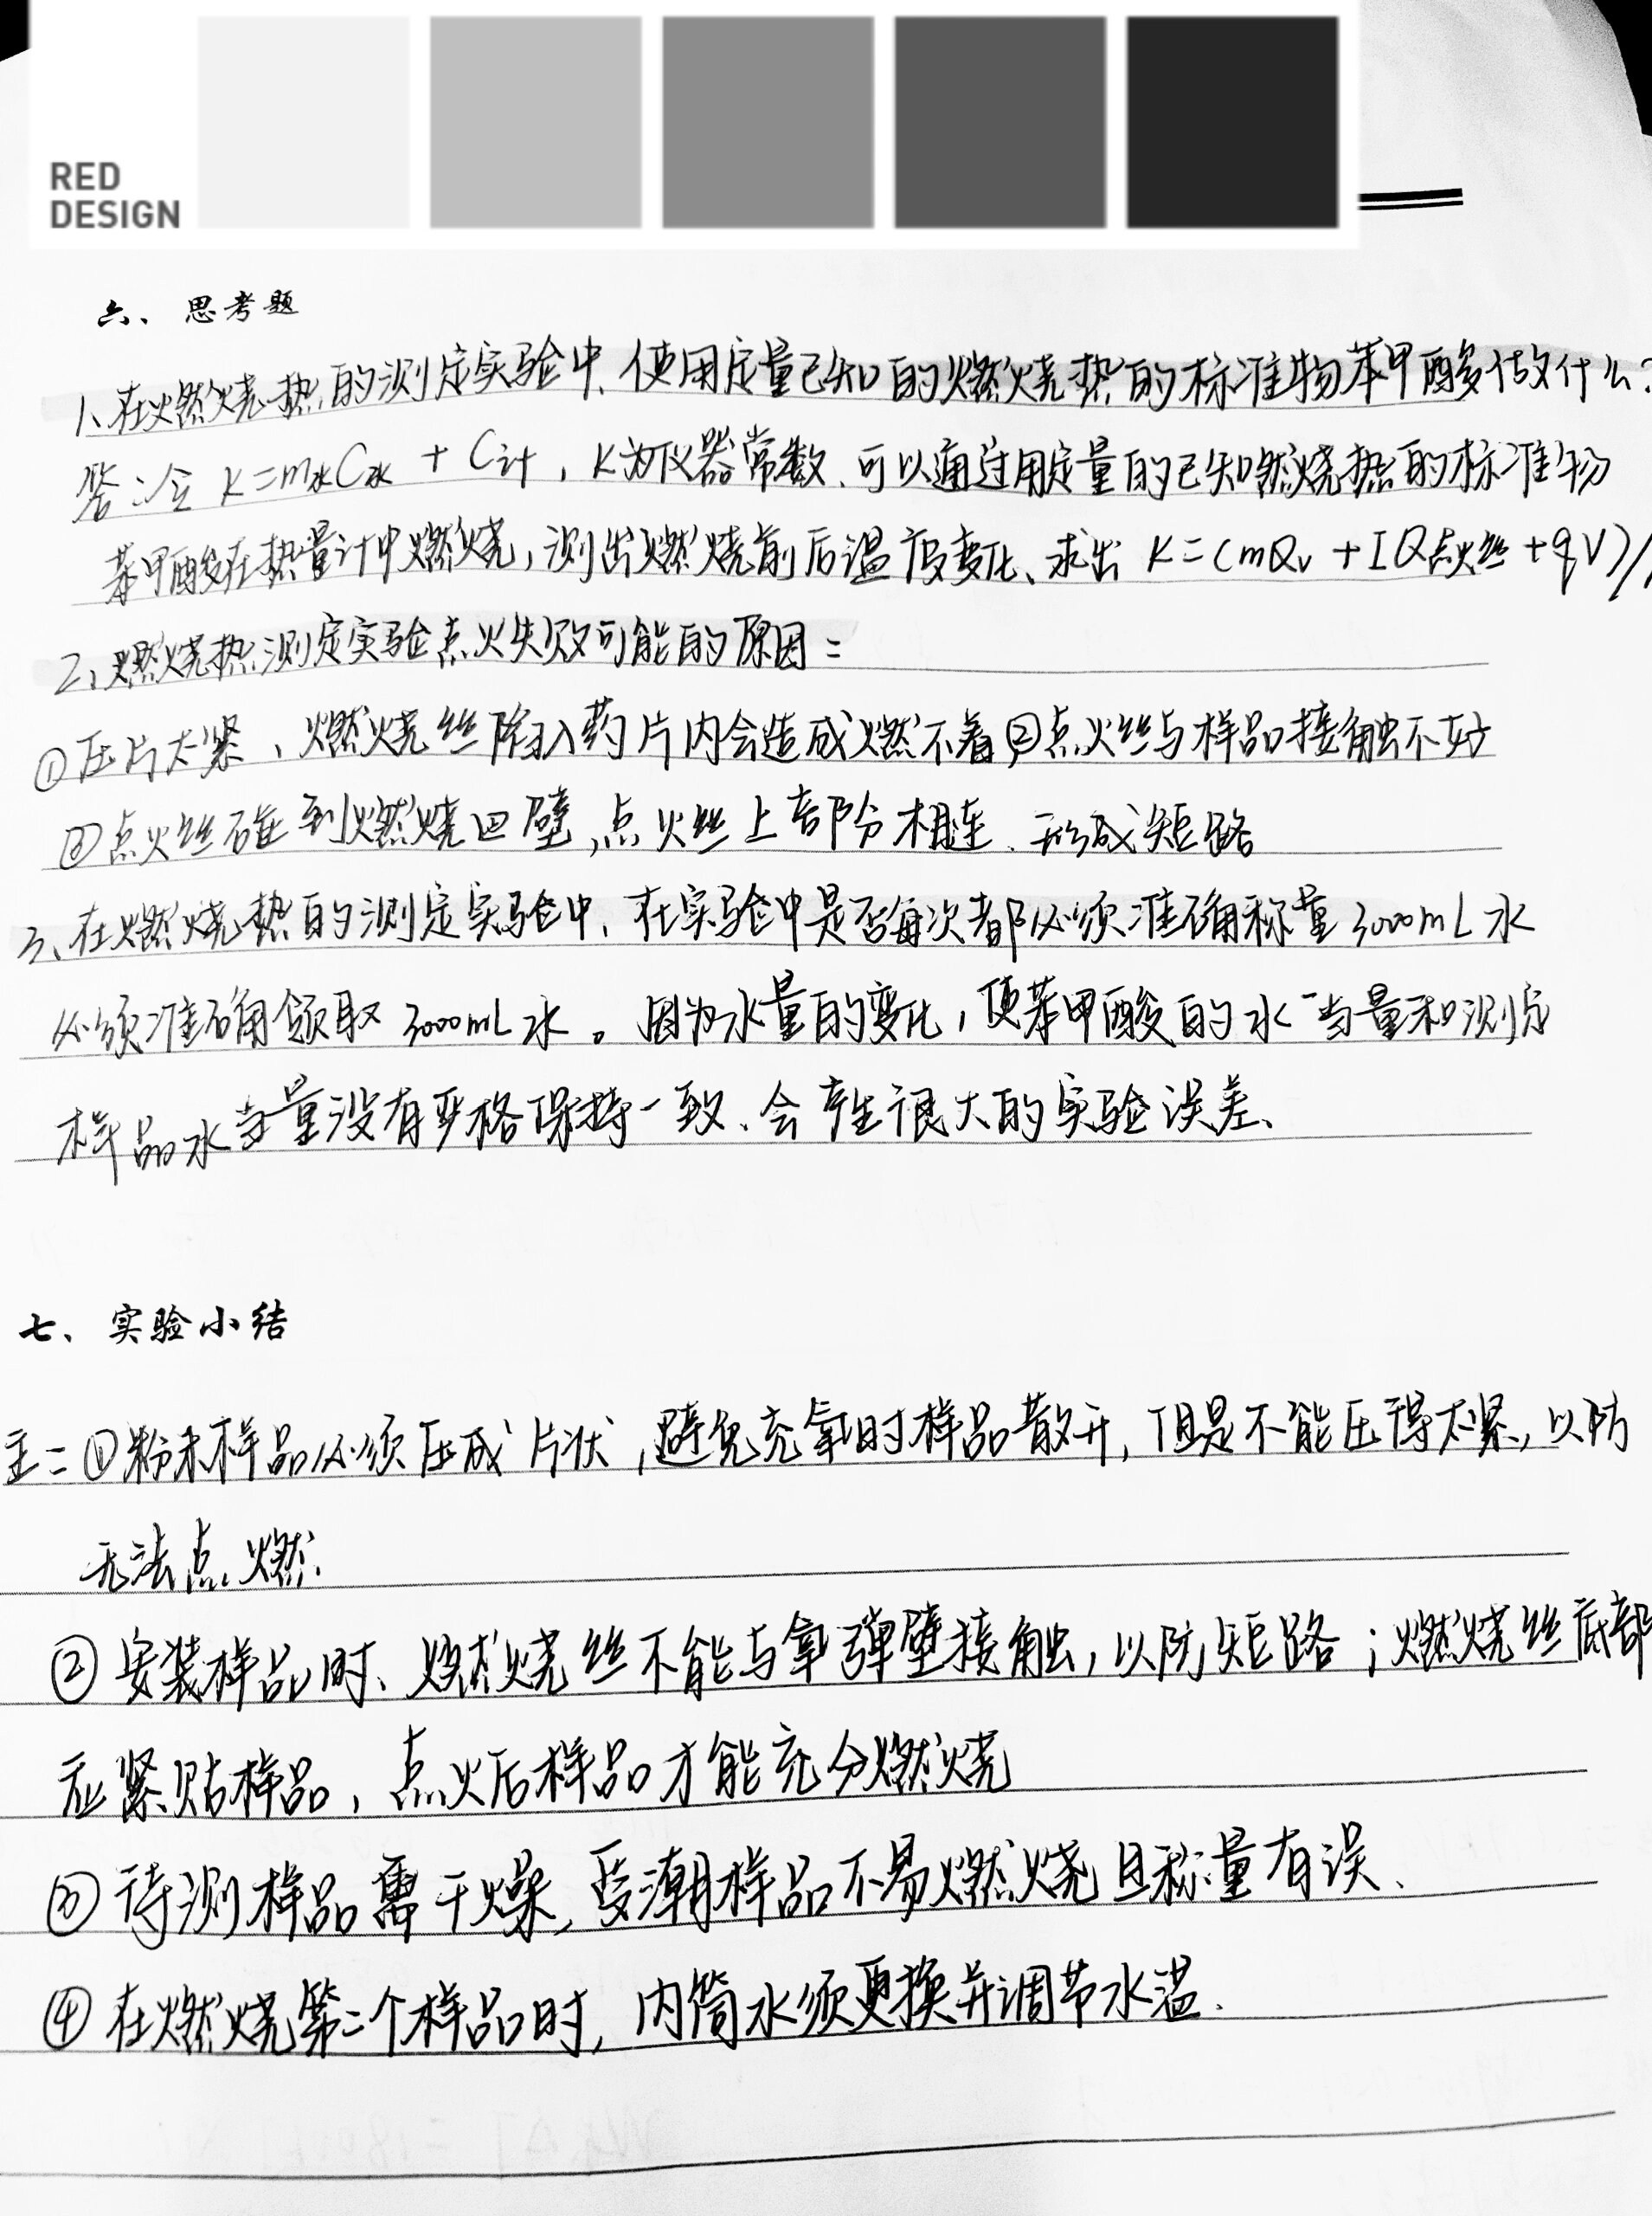 RED
DESIGN
六、思考题
1、在燃烧热的测定实验中、使用定量已知的燃烧热的标准物苯甲酸做什么?
答:令 K=m水C水 + C计,K为仪器常数、可以通过用定量的已知燃烧热的标准物
苯甲酸在热量计中燃烧,测出燃烧前后温度变化、求出 K=(mQv+IQ点火丝+qV)/
2、燃烧热测定实验点火失败可能的原因:
①压片太紧、燃烧丝陷入药片内会造成燃不着②点火丝与样品接触不好
③点火丝碰到燃烧皿壁,点火丝上部分相连、形成短路
3、在燃烧热的测定实验中、在实验中是否每次都必须准确称量3000mL水
必须准确领取3000mL水。因为水量的变化,使苯甲酸的水当量和测定
样品水当量没有严格保持一致、会产生很大的实验误差、
七、实验小结
①粉末样品必须压成片状,避免充氧时样品散开,但是不能压得太紧,以防
无法点燃.
②安装样品时、燃烧丝不能与氧弹壁接触,以防短路;燃烧丝底部
应紧贴样品,点火后样品才能充分燃烧
③待测样品需干燥,受潮样品不易燃烧且称量有误、
④在燃烧第二个样品时,内筒水须更换并调节水温.